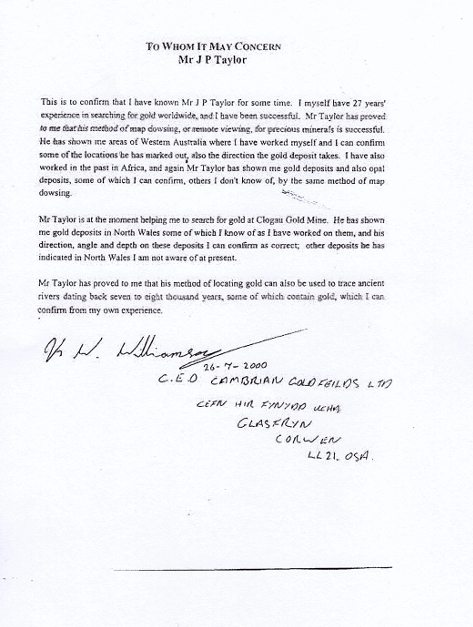 TO WHOM IT MAY CONCERN
Mr J P Taylor
This is to confirm that I have known Mr J P Taylor for some time. I myself have 27 years'
experience in searching for gold worldwide, and I have been successful. Mr Taylor has proved
to me that his method of map dowsing, or remote viewing, for precious minerals is successful.
He has shown me areas of Western Australia where I have worked myself and I can confirm
some of the locations he has marked out, also the direction the gold deposit takes. I have also
worked in the past in Africa, and again Mr Taylor has shown me gold deposits and also opal
deposits, some of which I can confirm, others I don't know of, by the same method of map
dowsing.
Mr Taylor is at the moment helping me to search for gold at Clogau Gold Mine. He has shown
me gold deposits in North Wales some of which I know of as I have worked on them, and his
direction, angle and depth on these deposits I can confirm as correct; other deposits he has
indicated in North Wales I am not aware of at present.
Mr Taylor has proved to me that his method of locating gold can also be used to trace ancient
rivers dating back seven to eight thousand years, some of which contain gold, which I can
confirm from my own experience.
W. Williamson
26-7-2000
C.E.O CAMBRIAN GOLDFEILDS LTD
CEFN HIR FYNYDD UCHA
GLASFRYN
CORWEN
LL21. OSA.